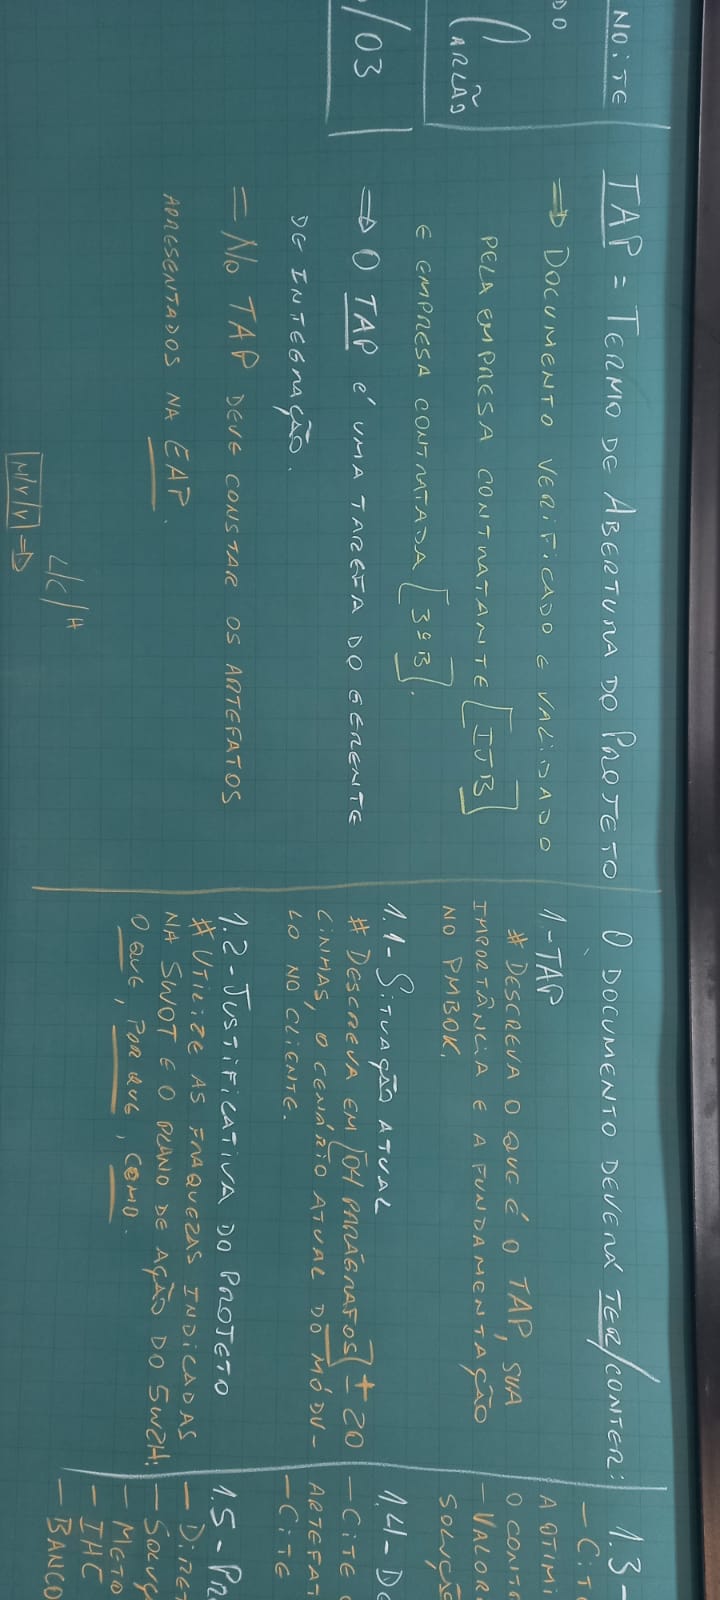 NOITE
DO
CARLÃO
/03
TAP = TERMO DE ABERTURA DO PROJETO
=> DOCUMENTO VERIFICADO E VALIDADO
PELA EMPRESA CONTRATANTE [IJB]
E EMPRESA CONTRATADA [3ºB].
=> O TAP é UMA TAREFA DO GERENTE
DE INTEGRAÇÃO.
= NO TAP DEVE CONSTAR OS ARTEFATOS
APRESENTADOS NA EAP.
L/C/H
M/V/V =>
O DOCUMENTO DEVERÁ TER/CONTER:
1-TAP
# DESCREVA O QUE É O TAP, SUA
IMPORTÂNCIA E A FUNDAMENTAÇÃO
NO PMBOK.
1.1- SITUAÇÃO ATUAL
# DESCREVA EM [04 PARÁGRAFOS] ± 20
LINHAS, O CENÁRIO ATUAL DO MÓDU-
LO NO CLIENTE.
1.2- JUSTIFICATIVA DO PROJETO
# UTILIZE AS FRAQUEZAS INDICADAS
NA SWOT E O PLANO DE AÇÃO DO 5W2H:
O QUE, POR QUE, COMO.
1.3-
- CIT
A OTIMI
O CONT
- VALOR
SOLUÇÃ
1.4- D
- CITE
ARTEFAT
- CITE
1.5- PR
- DIRET
- SOLUÇ
- METO
- IHC
- BANCO